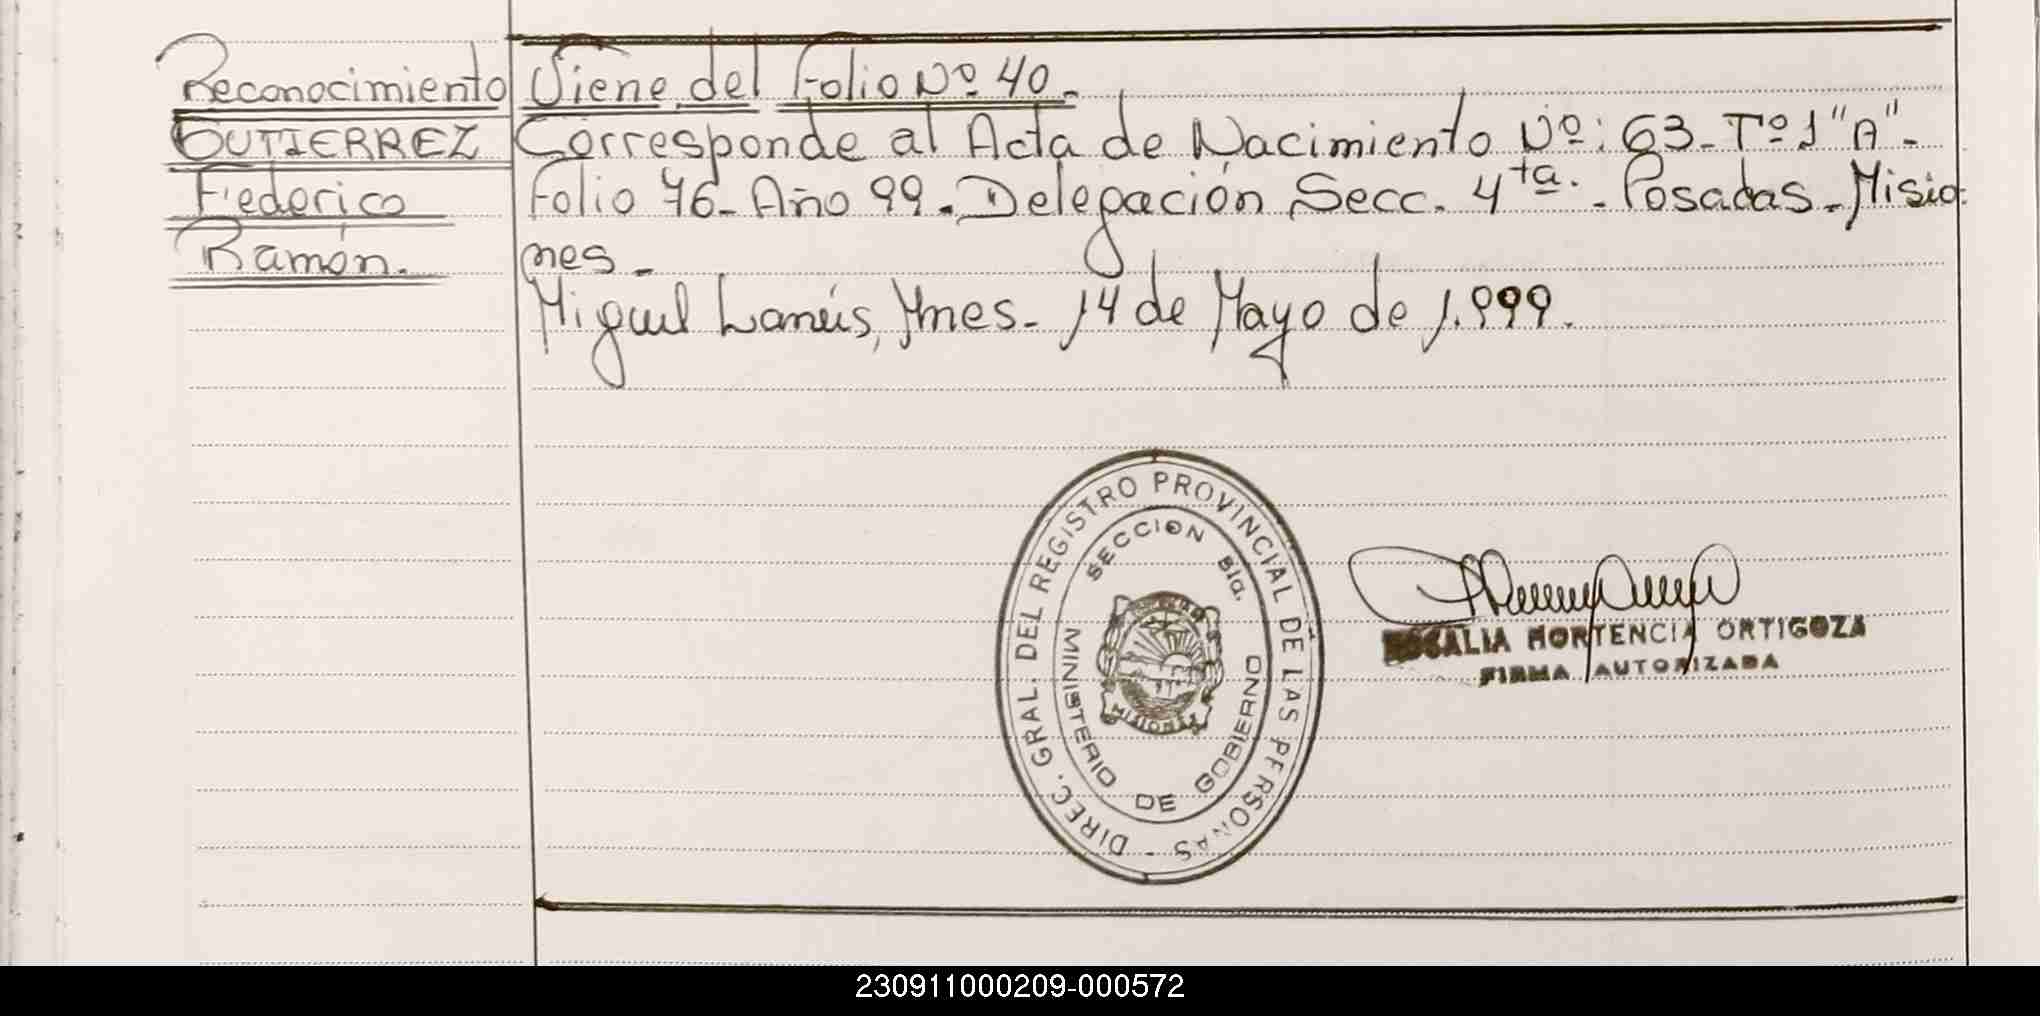 Reconocimiento
GUTIERREZ
Federico
Ramón.
Viene del Folio Nº 40.
Corresponde al Acta de Nacimiento Nº: 63- Tº 1 "A"-
Folio 76- Año 99. Delegación Secc. 4ta. - Posadas - Misio
nes -
Miguel Lanús, Mnes- 14 de Mayo de 1.999.
DIREC. GRAL. DEL REGISTRO PROVINCIAL DE LAS PERSONAS -
SECCION 8la.
MINISTERIO DE GOBIERNO
MISIONES
ROSALIA HORTENCIA ORTIGOZA
FIRMA AUTORIZADA
230911000209-000572